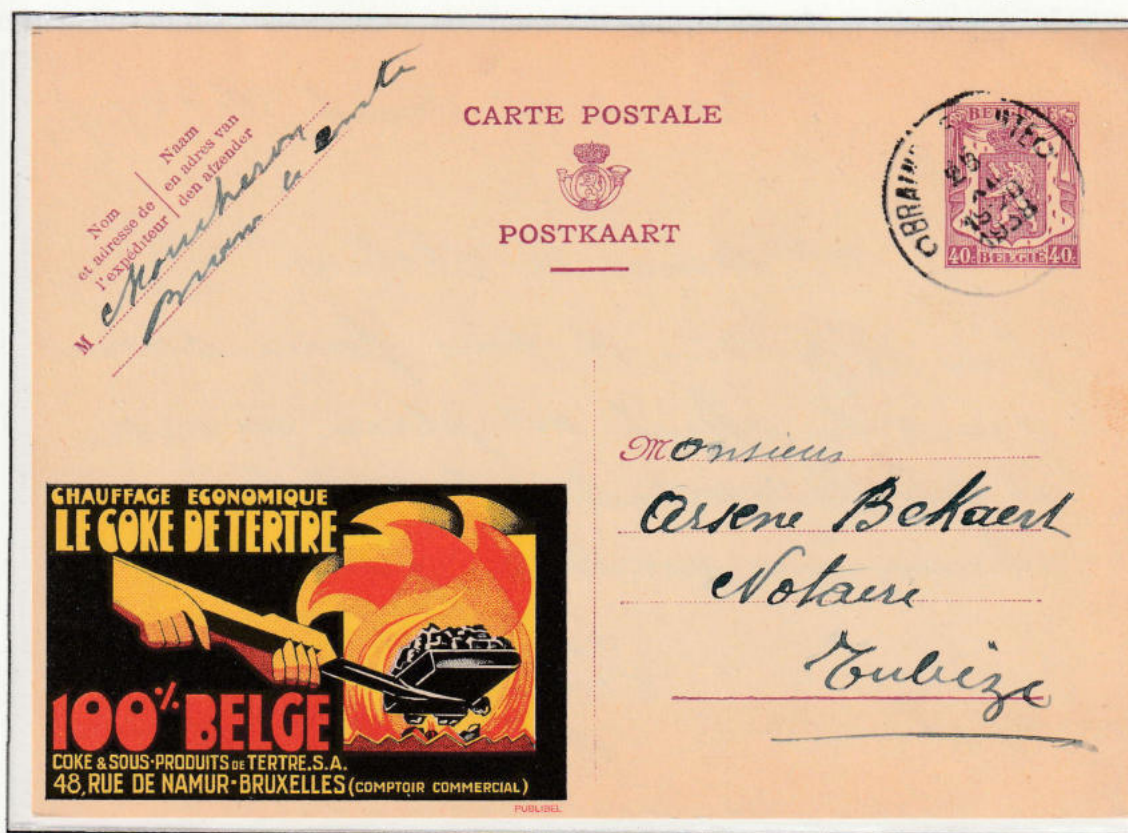 CARTE POSTALE
POSTKAART
Nom
et adresse de
l'expéditeur
Naam
en adres van
den afzender
M Moucheron
Braine le Comte
BELGIQUE
40c BELGIE 40c
BRAINE
1938
Monsieur
Arsene Bekaert
Notaire
Tubize
CHAUFFAGE ECONOMIQUE
LE COKE DE TERTRE
100% BELGE
COKE & SOUS-PRODUITS DE TERTRE.S.A.
48, RUE DE NAMUR-BRUXELLES (COMPTOIR COMMERCIAL)
PUBLIBEL